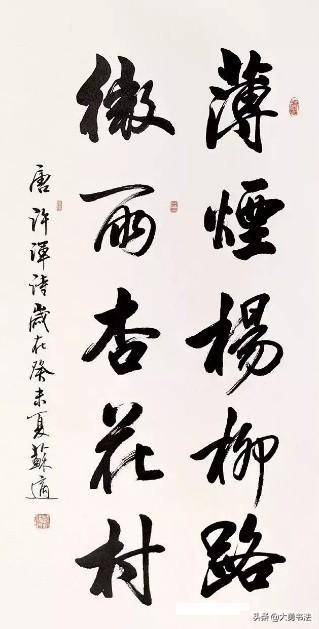 薄煙楊柳路
微雨杏花村
唐許渾詩歲在癸未夏蘇適
头条@大美书法